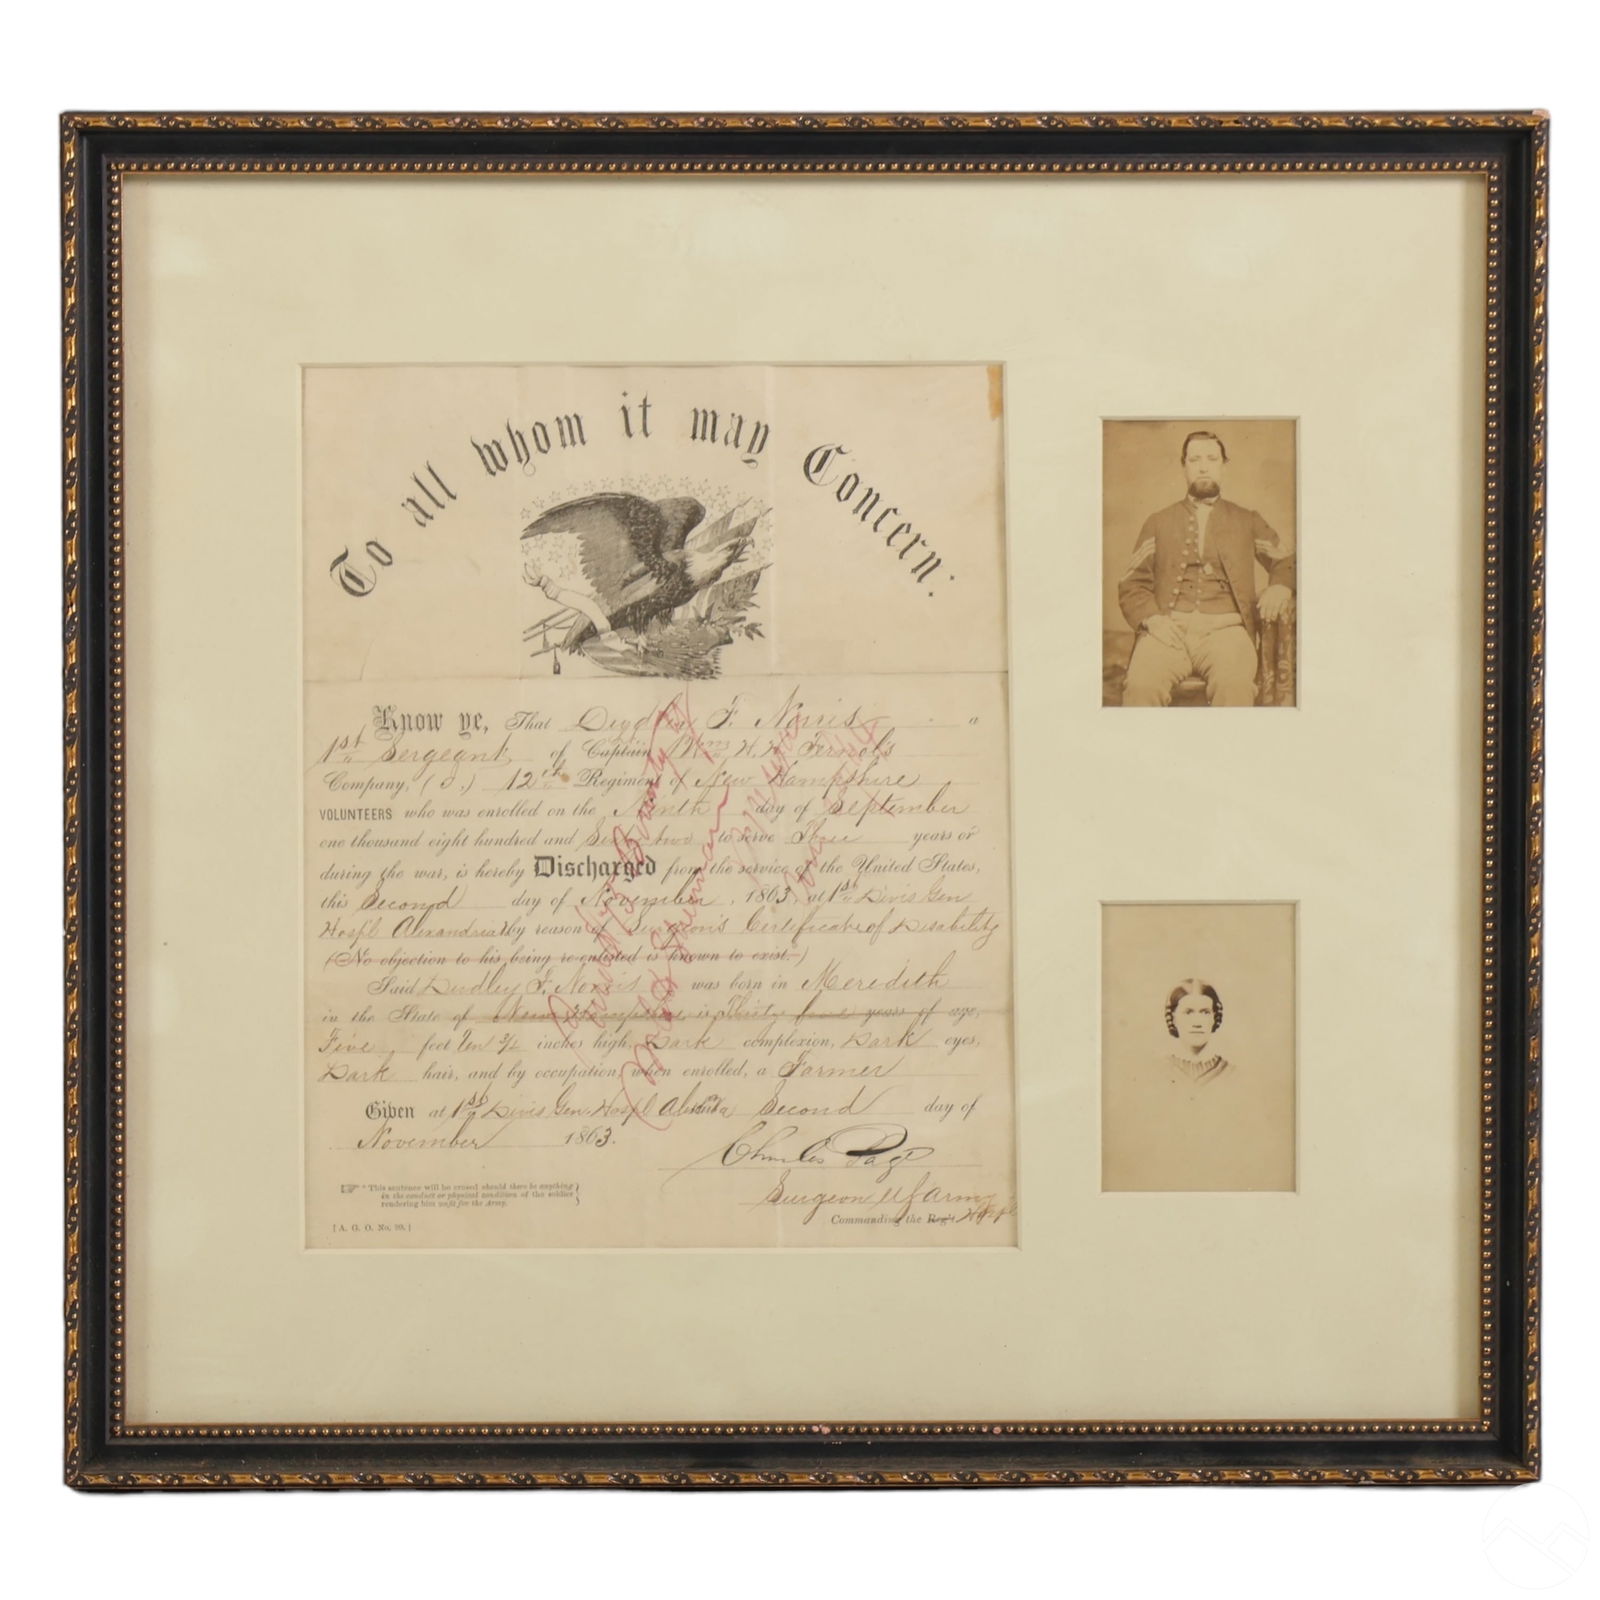 To all whom it may Concern:
Know ye, That Dudley F. Norris a
1st Sergeant of Captain Wm H. H. Fernal's
Company, ( ) 12th Regiment of New Hampshire
VOLUNTEERS who was enrolled on the Ninth day of September
one thousand eight hundred and Sixty two to serve Three years or
during the war, is hereby Discharged from the service of the United States,
this Second day of November, 1863, at 1st Divis Gen
Hospl Alexandria by reason of Surgeon's Certificate of Disability
(No objection to his being re-enlisted is known to exist.)
Said Dudley F. Norris was born in Meredith
in the State of New Hampshire, is Thirty five years of age,
Five feet Ten 3/4 inches high, Dark complexion, Dark eyes,
Dark hair, and by occupation, when enrolled, a Farmer
Given at 1st Divis Gen. Hospl Second day of
November 1863.
Charles Page
Surgeon U S Army
Commanding the Reg't Hospl
*This sentence will be erased should there be anything
in the conduct or physical condition of the soldier
rendering him unfit for the Army.
[A. G. O. No. 99.]